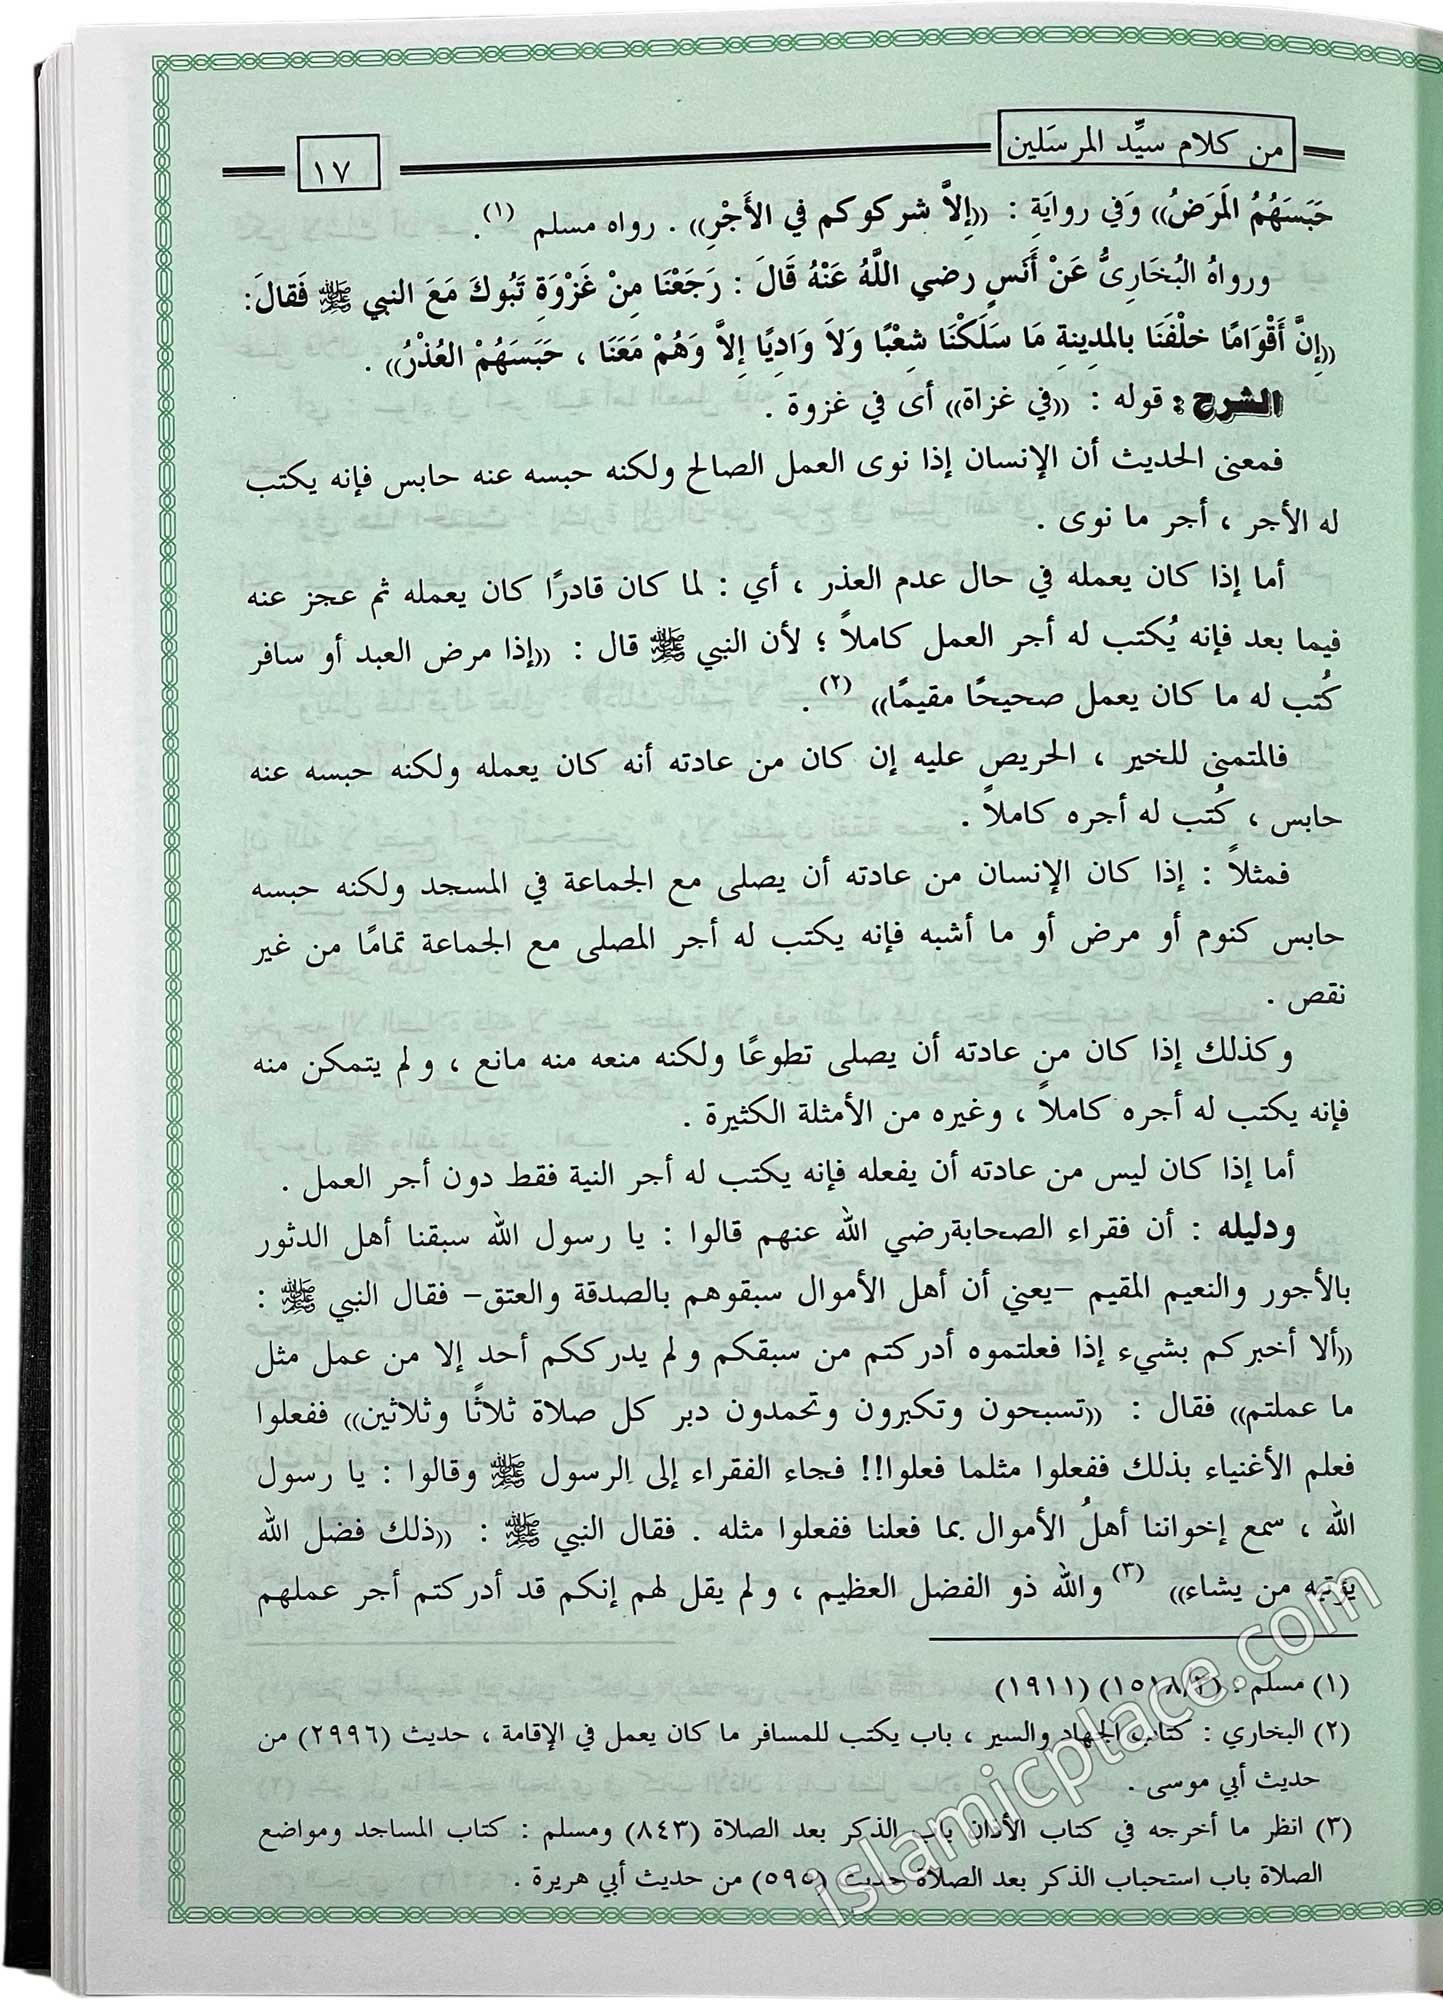 من كلام سيِّد المرسَلين
١٧
حَبَسَهُمُ المَرَضُ» وَفي روايَةٍ : «إِلاَّ شركوكم في الأَجْرِ» . رواه مسلم (١).
ورواهُ البُخَارِىُّ عَنْ أَنَسٍ رضي اللَّهُ عَنْهُ قَالَ : رَجَعْنَا مِنْ غَزْوَةِ تَبُوكَ مَعَ النبي ﷺ فَقالَ:
«إِنَّ أَقْوَامًا خلْفَنَا بالمدِينةِ مَا سَلَكْنَا شِعْبًا وَلاَ وَادِيًا إِلاَّ وَهُمْ مَعَنَا ، حَبَسَهُمْ العُذْرُ» .
الشرح : قوله : «في غزاة» أى في غزوة .
فمعنى الحديث أن الإنسان إذا نوى العمل الصالح ولكنه حبسه عنه حابس فإنه يكتب
له الأجر ، أجر ما نوى .
أما إذا كان يعمله في حال عدم العذر ، أي : لما كان قادرًا كان يعمله ثم عجز عنه
فيما بعد فإنه يُكتب له أجر العمل كاملاً ؛ لأن النبي ﷺ قال : «إذا مرض العبد أو سافر
كُتب له ما كان يعمل صحيحًا مقيمًا» (٢) .
فالمتمنى للخير ، الحريص عليه إن كان من عادته أنه كان يعمله ولكنه حبسه عنه
حابس ، كُتب له أجره كاملاً .
فمثلاً : إذا كان الإنسان من عادته أن يصلى مع الجماعة في المسجد ولكنه حبسه
حابس كنوم أو مرض أو ما أشبه فإنه يكتب له أجر المصلى مع الجماعة تمامًا من غير
نقص .
وكذلك إذا كان من عادته أن يصلى تطوعًا ولكنه منعه منه مانع ، ولم يتمكن منه
فإنه يكتب له أجره كاملاً ، وغيره من الأمثلة الكثيرة .
أما إذا كان ليس من عادته أن يفعله فإنه يكتب له أجر النية فقط دون أجر العمل .
ودليله : أن فقراء الصحابةرضي الله عنهم قالوا : يا رسول الله سبقنا أهل الدثور
بالأجور والنعيم المقيم –يعني أن أهل الأموال سبقوهم بالصدقة والعتق– فقال النبي ﷺ :
«ألا أخبركم بشيء إذا فعلتموه أدركتم من سبقكم ولم يدرككم أحد إلا من عمل مثل
ما عملتم» فقال : «تسبحون وتكبرون وتحمدون دبر كل صلاة ثلاثًا وثلاثين» ففعلوا
فعلم الأغنياء بذلك ففعلوا مثلما فعلوا!! فجاء الفقراء إلى الرسول ﷺ وقالوا : يا رسول
الله ، سمع إخواننا أهلُ الأموال بما فعلنا ففعلوا مثله . فقال النبي ﷺ : «ذلك فضل الله
يؤتيه من يشاء» (٣) والله ذو الفضل العظيم ، ولم يقل لهم إنكم قد أدركتم أجر عملهم
(١) مسلم : (١٥١٨/٢) (١٩١١)
(٢) البخاري : كتاب الجهاد والسير ، باب يكتب للمسافر ما كان يعمل في الإقامة ، حديث (٢٩٩٦) من
حديث أبي موسى .
(٣) انظر ما أخرجه في كتاب الأذان باب الذكر بعد الصلاة (٨٤٣) ومسلم : كتاب المساجد ومواضع
الصلاة باب استحباب الذكر بعد الصلاة حديث (٥٩٥) من حديث أبي هريرة .
islamicplace.com